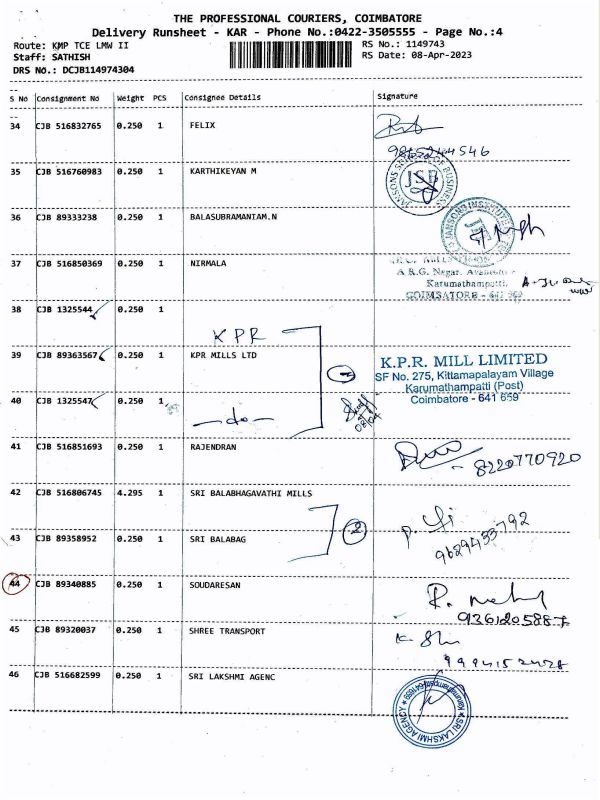 THE PROFESSIONAL COURIERS, COIMBATORE
Delivery Runsheet - KAR - Phone No.:0422-3505555 - Page No.:4
Route: KMP TCE LMW II RS No.: 1149743
Staff: SATHISH RS Date: 08-Apr-2023
DRS No.: DCJB114974304
S No Consignment No Weight PCS Consignee Details Signature
34 CJB 516832765 0.250 1 FELIX
35 CJB 516760983 0.250 1 KARTHIKEYAN M
JANSONS SCHOOL OF BUSINESS
JSB
36 CJB 89333238 0.250 1 BALASUBRAMANIAM.N
JANSONS INSTITUTE
37 CJB 516850369 0.250 1 NIRMALA
A.R.G. Nagar,
Karumathampatti,
COIMBATORE - 641
38 CJB 1325544 0.250 1
KPR
39 CJB 89363567 0.250 1 KPR MILLS LTD
K.P.R. MILL LIMITED
SF No. 275, Kittamapalayam Village
Karumathampatti (Post)
Coimbatore - 641 659
40 CJB 1325547 0.250 1
-do-
08/04
41 CJB 516851693 0.250 1 RAJENDRAN
8220770920
42 CJB 516806745 4.295 1 SRI BALABHAGAVATHI MILLS
2
43 CJB 89358952 0.250 1 SRI BALABAG
9629433792
44 CJB 89340885 0.250 1 SOUDARESAN
9361205887
45 CJB 89320037 0.250 1 SHREE TRANSPORT
46 CJB 516682599 0.250 1 SRI LAKSHMI AGENC
SRI LAKSHMI AGENCY